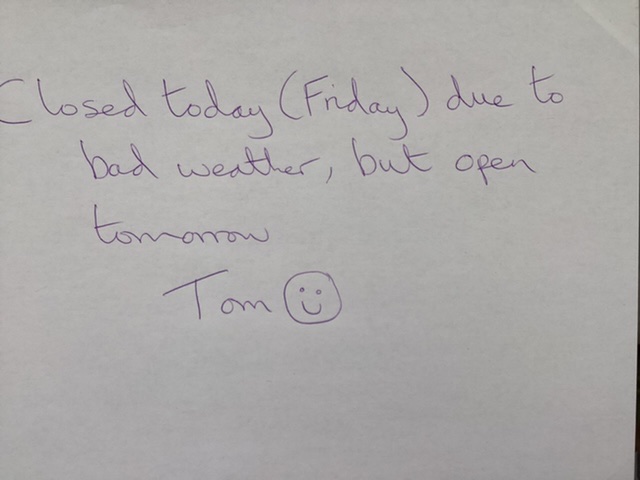 Closed today (Friday) due to
bad weather, but open
tomorrow
Tom